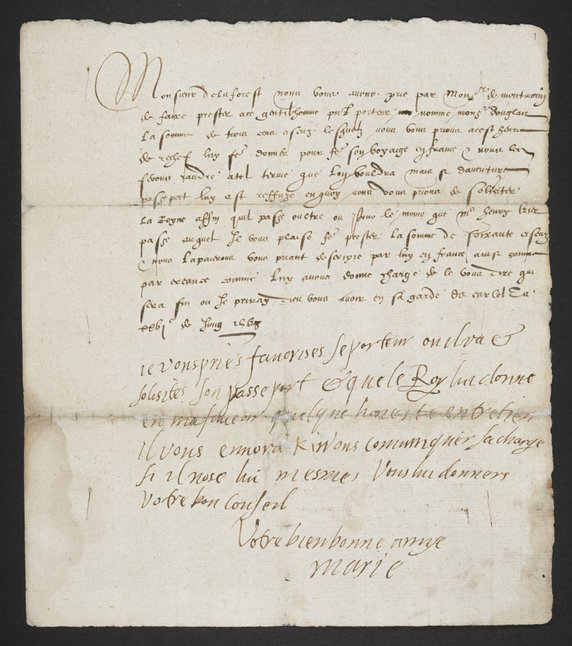 Monsieur delaforest nous vous avons prie par Mons.r de montmorin
de faire prester a ce gentilhomme nomme mons.r douglas
la somme de trois cens escuz lesquelz nous vous prions a cest heure
de rechef luy fe donner pour fe son voyage en france & nous les
ferons randre a tel terme que luy vouldra mais si daventure
passeport luy est reffuze en quoy nous vous prions de solliciter
la Royne affin quil passe oultre ou pour le moins que m.r henry
passe auquel Il vous plaise fe prester la somme de soixante escuz
& nous la paierons vous priant descripre par luy en france aussi comme
par creance comme luy avons donne charge de le vous dire qui
sera fin ou Je priray dieu vous avoir en sa garde de carlel ce
de Juing 1568
ie vous pries favorises se porteur ou il va &
solisites son passeport & que le Roy lui donne
en ma faveur quelque honeste entretien
il vous communiquer sa charge
si il nose lui mesmes vous lui donnerés
votre bon conseil
Votre bien bonne amye
Marie